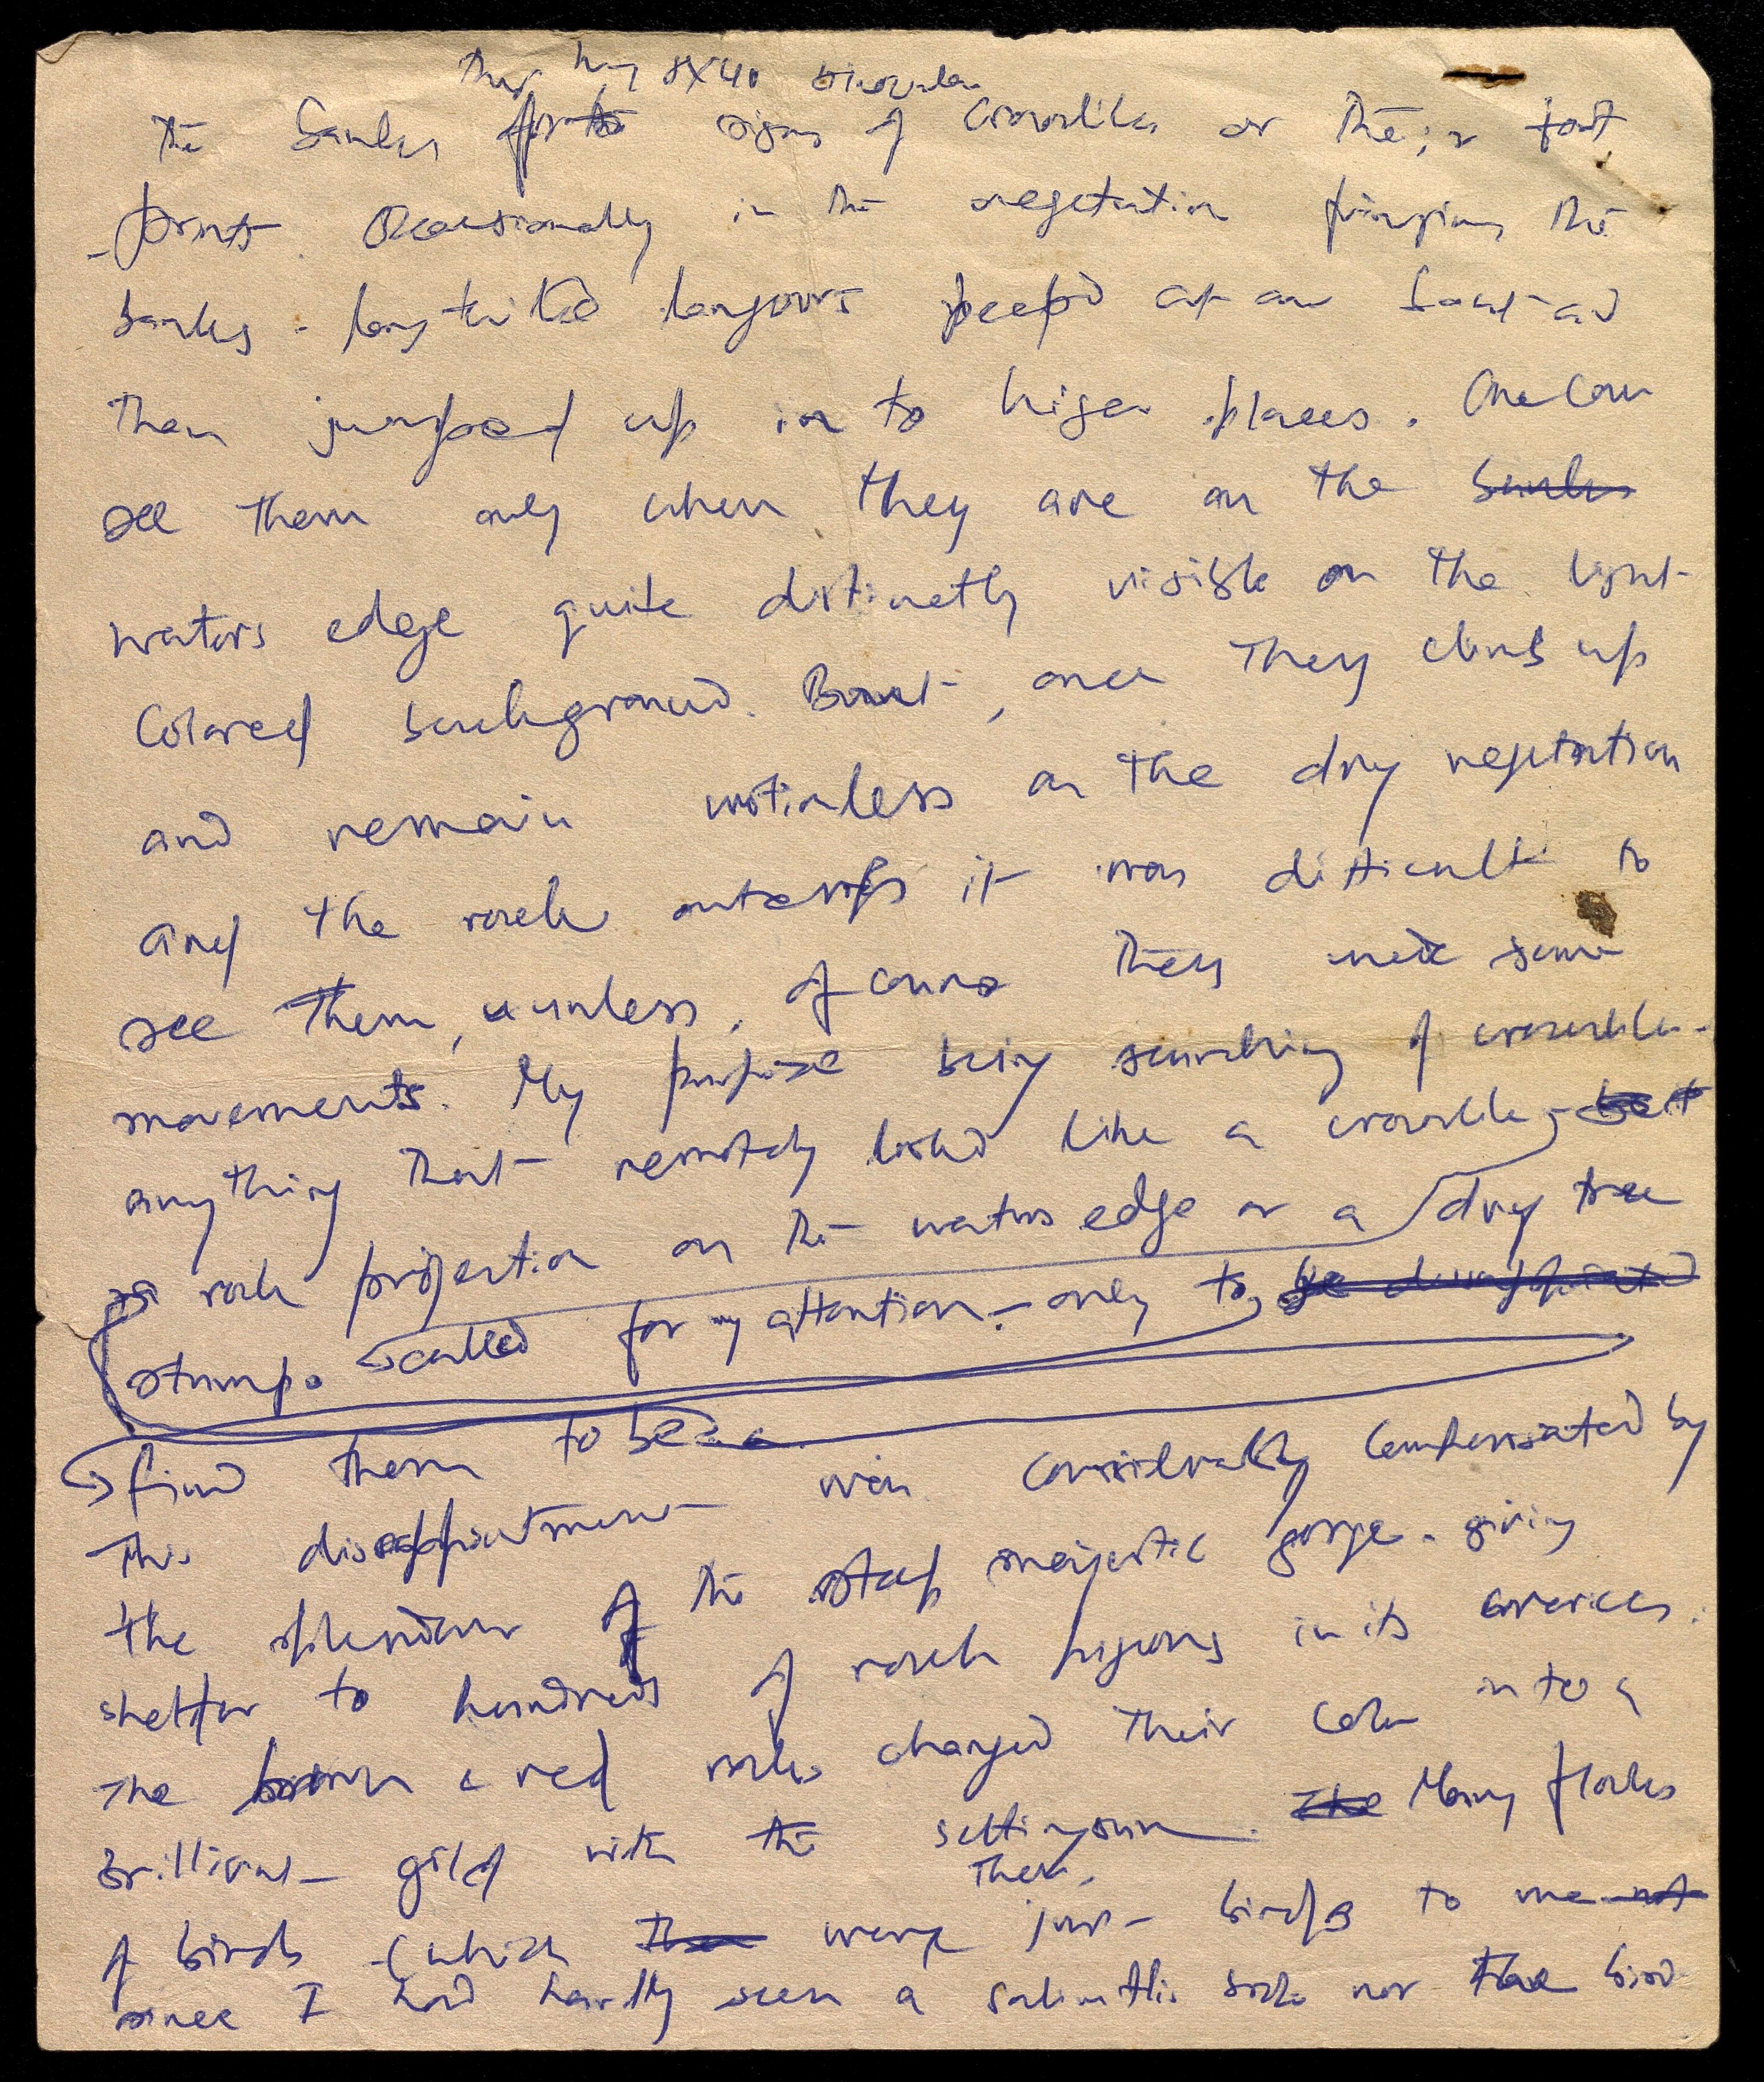 Thru my 8X40 binocular
the banks for signs of crocodiles or their foot
-prints. Occasionally in the vegetation fringing the
banks - long tailed langours peeped at our boat and
then jumped up in to higer places. One can
see them only when they are on the banks
waters edge quite distinctly visible on the light
colored background. But, once they climb up
and remain motionless on the dry vegetation
and the rock outcrops it was difficult to
see them, unless, of course they made some
movements. My purpose being searching of crocodiles -
anything that remotely looked like a crocodile, - but
as rock projection on the waters edge or a dry tree
stump. called for my attention - only to be disappointed
find them to be
This disappointment was considerably compensated by
the splendour of the steep majestic gorge - giving
shelter to hundreds of rock pigeons in its crevices.
The brown & red rocks changed their color into a
brilliant gild with the setting sun. The Many flocks
then,
of birds - (which were just birds to me not
since I had hardly seen a Salim Ali's book nor the bird